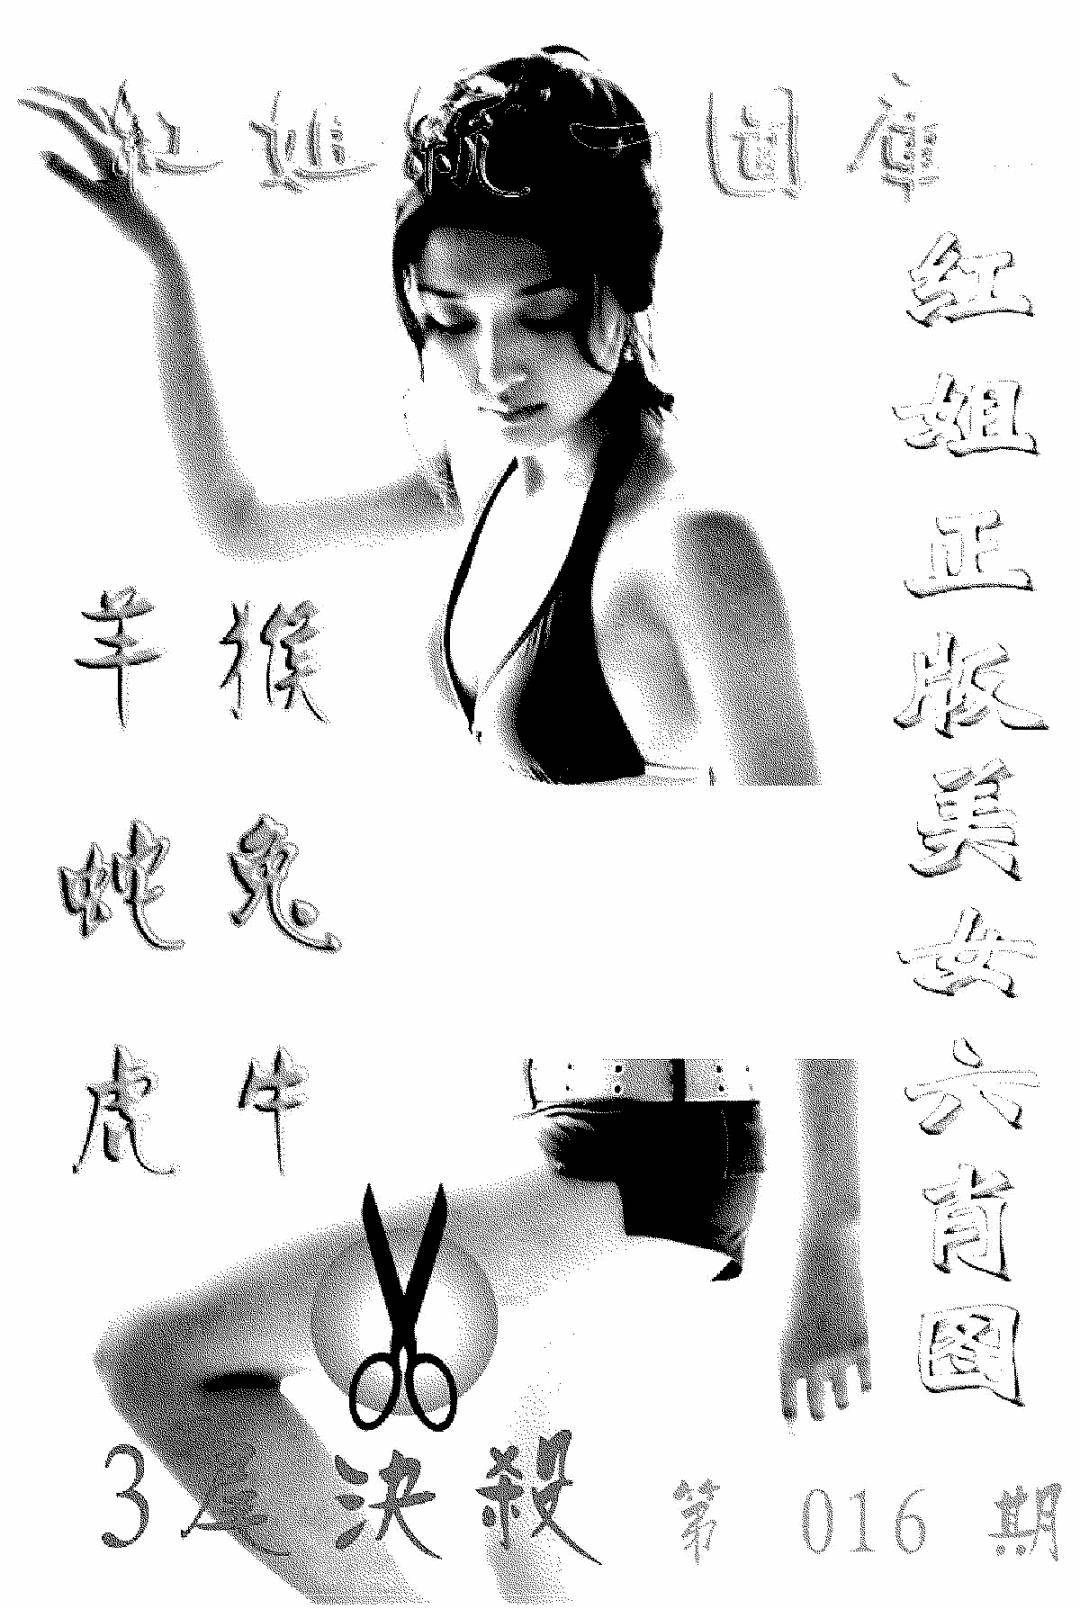 紅姐統一圖庫
紅姐正版美女六肖圖
羊 猴
蛇 兔
虎 牛
3尾決殺
第 016 期